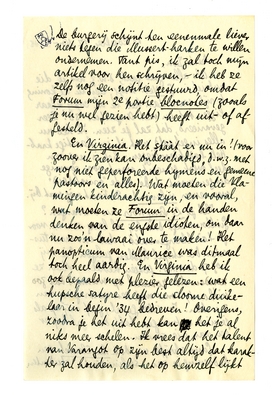 De burgerij schijnt hen eenmaal liever
niet tegen die Mussert-harken te willen
ondernemen. Tant pis, ik zal toch mijn
artikel voor hen schrijven, – ik heb ze
zelfs nog een notitie gestuurd, omdat
Forum mijn 2e portie blocnotes (zooals
je nu wel gezien hebt) heeft uit- of af-
gesteld.
En Virginia. Het staat er nu in! (voor
zoover ik zien kan onbeschadigd, d.w.z. met
nog niet geperforeerde hymens en gemeene
pastoors en alles). Wat moeten die Vla-
mingen kinderachtig zijn, en vooral,
wat moeten ze Forum in de handen
denken van de ergste idioten, om daar
nu zoo'n lawaai over te maken! Het
panopticum van Maurice was ditmaal
toch heel aardig. En Virginia heb ik
ook alweer met plezier gelezen: wat een
hupsche satyre heeft die
in begin '34 bedreven! Overigens,
zoodra je het uit hebt kan het je al
niks meer schelen. Ik vrees dat het talent
van Varangot op zijn best altijd dat karak-
ter zal houden, als het op hemzelf lijkt